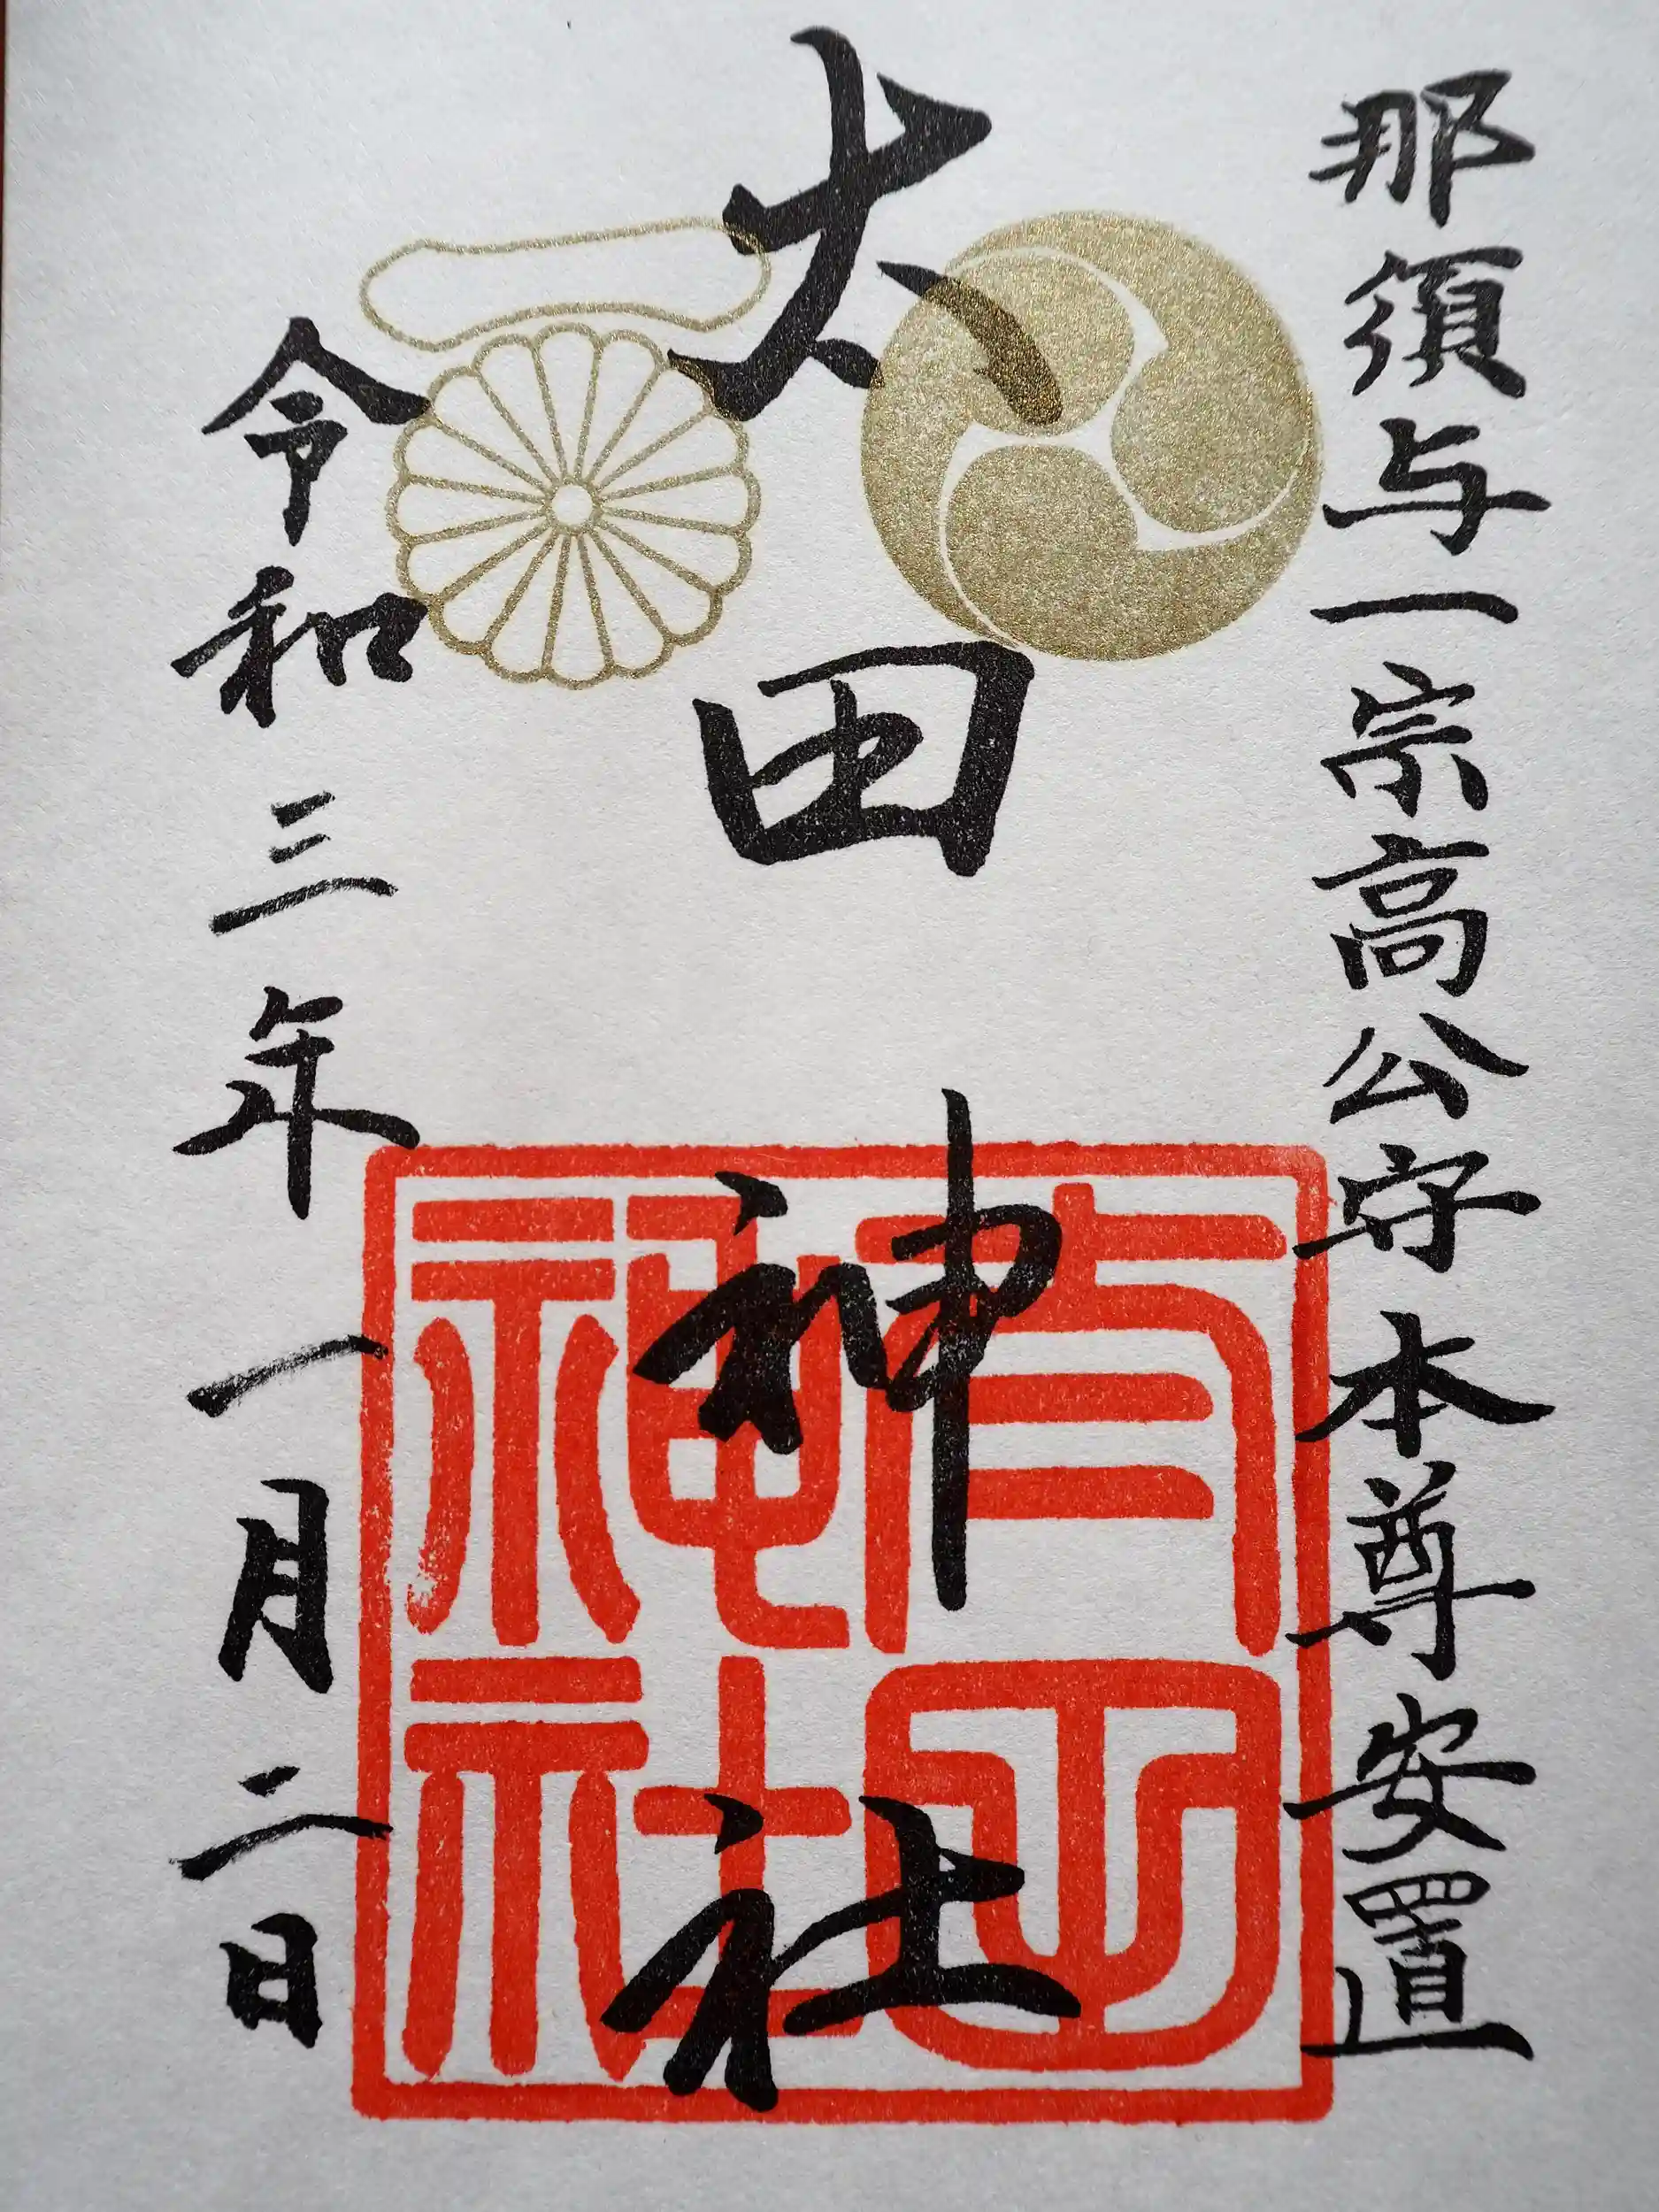 那須与一宗高公守本尊安置
太田神社
令和三年一月二日
神社